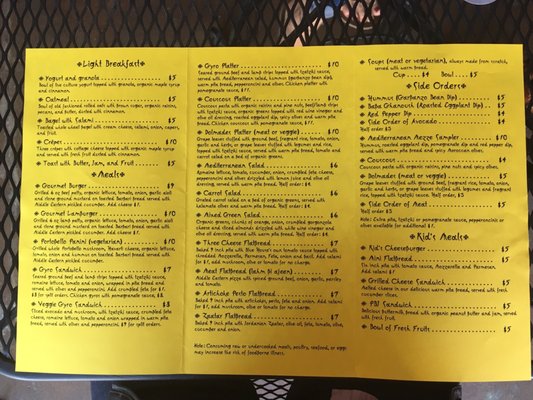 Light Breakfast
Yogurt and granola $5
Bowl of live culture yogurt topped with granola, organic maple syrup
and cinnamon.
Oatmeal $5
Bowl of old fashioned rolled oats with brown sugar, organic raisins,
pecans, and fruit, dusted with cinnamon.
Bagel with Salami $5
Toasted whole wheat bagel with cream cheese, salami, onion, capers,
and fruit.
Crêpes $10
Three crêpes with cottage cheese topped with organic maple syrup
and served with fresh fruit dusted with cinnamon.
Toast with Butter, Jam, and Fruit $5
Meals
Gourmet Burger $9
Grilled 8 oz beef patty, organic lettuce, tomato, onion, garlic aioli
and stone ground mustard on toasted Barbari bread served with
Middle Eastern pickled cucumber. Add cheese $1.
Gourmet Lamburger $10
Grilled 8 oz lamb patty, organic lettuce, tomato, onion, garlic aioli
and stone ground mustard on toasted Barbari bread served with
Middle Eastern pickled cucumber. Add cheese $1.
Portobello Panini (vegetarian) $10
Grilled whole Portobello mushroom, Havarti cheese, organic lettuce,
tomato, onion and hummus on toasted Barbari bread served with
Middle Eastern pickled cucumber.
Gyro Sandwich $7
Seared ground beef and lamb strips topped with tzatziki sauce,
romaine lettuce, tomato and onion, wrapped in pita bread and
served with olives and pepperoncini. Add crumbled feta for $1.
$8 for split orders. Chicken gyros with pomegranate sauce, $8.
Veggie Gyro Sandwich $8
Sliced avocado and mushroom, with tzatziki sauce, crumbled feta
cheese, romaine lettuce, tomato and onion wrapped in warm pita
bread, served with olives and pepperoncini. $9 for split orders.
Gyro Platter $10
Seared ground beef and lamb strips topped with tzatziki sauce,
served with Mediterranean salad, hummus (garbanzo bean dip),
warm pita bread, pepperoncini and olives. Chicken platter with
pomegranate sauce, $11.
Couscous Platter $10
Couscous pasta with organic raisins and pine nuts, beef/lamb strips
with tzatziki sauce, organic greens topped with red wine vinegar and
olive oil dressing, roasted eggplant dip, spicy olives and warm pita
bread. Chicken couscous with pomegranate sauce, $11.
Dolmades Platter (meat or veggie) $10
Grape leaves stuffed with ground beef, fragrant rice, tomato, onion,
garlic and herbs, or grape leaves stuffed with legumes and rice,
topped with tzatziki sauce, with warm pita bread, tomato and
carrot salad on a bed of organic greens.
Mediterranean Salad $6
Romaine lettuce, tomato, cucumber, onion, crumbled feta cheese,
pepperoncini and olives drizzled with lemon juice and olive oil
dressing, served with warm pita bread. Half order: $4.
Carrot Salad $6
Grated carrot salad on a bed of organic greens, served with
kalamata olives and warm pita bread. Half order: $3.
Mixed Green Salad $6
Organic greens, slices of orange, onion, crumbled gorgonzola
cheese and sliced almonds drizzled with white wine vinegar and
olive oil dressing, served with warm pita bread. Half order: $4.
Three Cheese Flatbread $7
Baked 9 inch pita with Blue Heron's own tomato sauce topped with
shredded Mozzarella, Parmesan, Feta, onion and basil. Add salami
for $1; add mushroom, olive or tomato for no charge.
Meat Flatbread $7
Middle Eastern pizza with spiced ground beef, onion, garlic, parsley
and tomato.
Artichoke Pesto Flatbread $7
Baked 9 inch pita with artichokes, pesto, feta and onion. Add salami
for $1; add mushroom, olive or tomato for no charge.
Zaatar Flatbread $7
Baked 9 inch pita with Jordanian Zaatar, olive oil, feta, tomato, olive,
cucumber and onion.
Note: Consuming raw or undercooked meats, poultry, seafood, or eggs
may increase the risk of foodborne illness.
Soups (meat or vegetarian), always made from scratch,
served with warm bread.
Cup $4 Bowl $5
Side Orders
Hummus (Garbanzo Bean Dip) $5
Baba Ghanoush (Roasted Eggplant Dip) $5
Red Pepper Dip $4
Side Order of Avocado $4
Half order $2
Mediterranean Mezze Sampler $10
Hummus, roasted eggplant dip, pomegranate dip and red pepper dip,
with warm pita bread and spicy Moroccan olives.
Couscous $4
Couscous pasta with organic raisins, pine nuts and spicy olives.
Dolmades (meat or veggie) $5
Grape leaves stuffed with ground beef, fragrant rice, tomato, onion,
garlic and herbs, or grape leaves stuffed with legumes and fragrant
rice, topped with tzatziki sauce. Half order. $3
Side Order of Meat $5
Half order $3
Note: Extra pita, tzatziki or pomegranate sauce, pepperoncini or
olives available for additional $1.
Kid's Meals
Kid's Cheeseburger $5
Mini Flatbread $5
Five inch pita with tomato sauce, Mozzarella and Parmesan.
Add salami $1
Grilled Cheese Sandwich $5
Melted cheese in our delicious warm pita bread, served with fresh
cucumber slices.
PBJ Sandwich $5
Delicious buttermilk bread with organic peanut butter and jam, served
with fresh fruit.
Bowl of Fresh Fruits $5